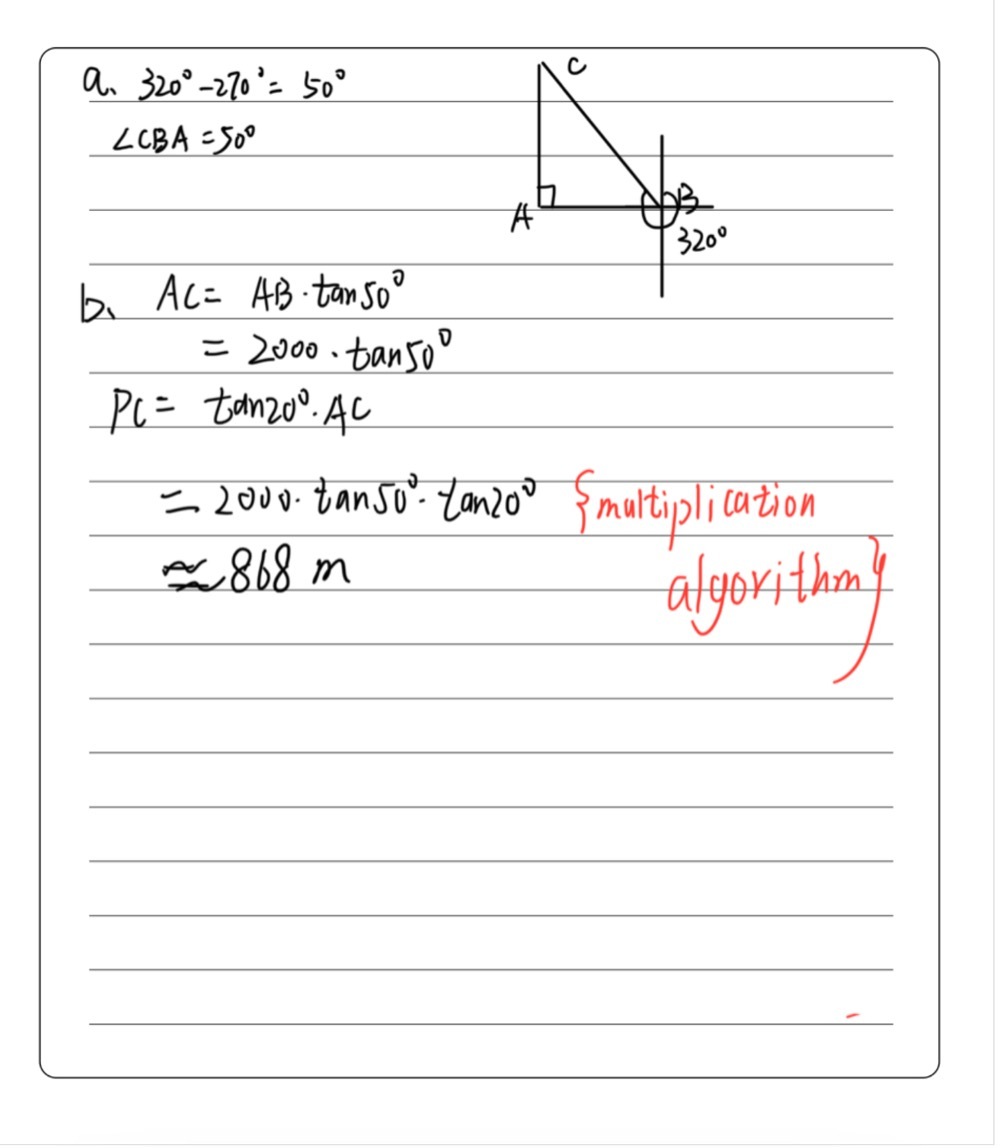 a. 320° - 270° = 50°
∠CBA = 50°
C
A
B
320°
b. AC = AB · tan50°
= 2000 · tan50°
PC = tan20° · AC
= 2000 · tan50° · tan20° {multiplication
algorithm}
≈ 868 m